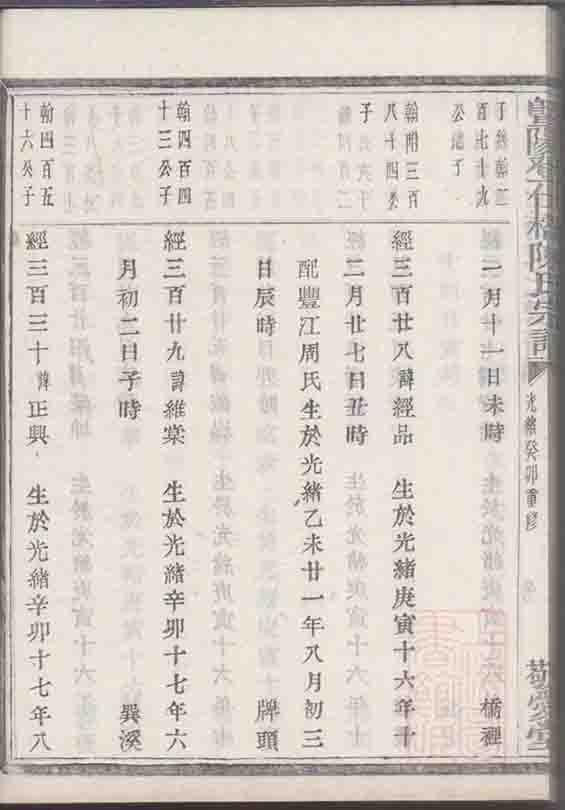 暨陽仕橋陳氏宗譜 光緒癸卯重修 敬愛堂
百七十九
公子
一月十一日未時 橋裡
三百
八十四
子
經三百廿八諱經品 生於光緒庚寅十六年十
二月廿七日丑時
配豐江周氏生於光緒乙未廿一年八月初三
日辰時 牌頭
翰四百四
十三公子
經三百廿九諱維棠 生於光緒辛卯十七年六
月初二日子時 巽溪
翰四百五
十六公子
經三百三十諱正興 生於光緒辛卯十七年八